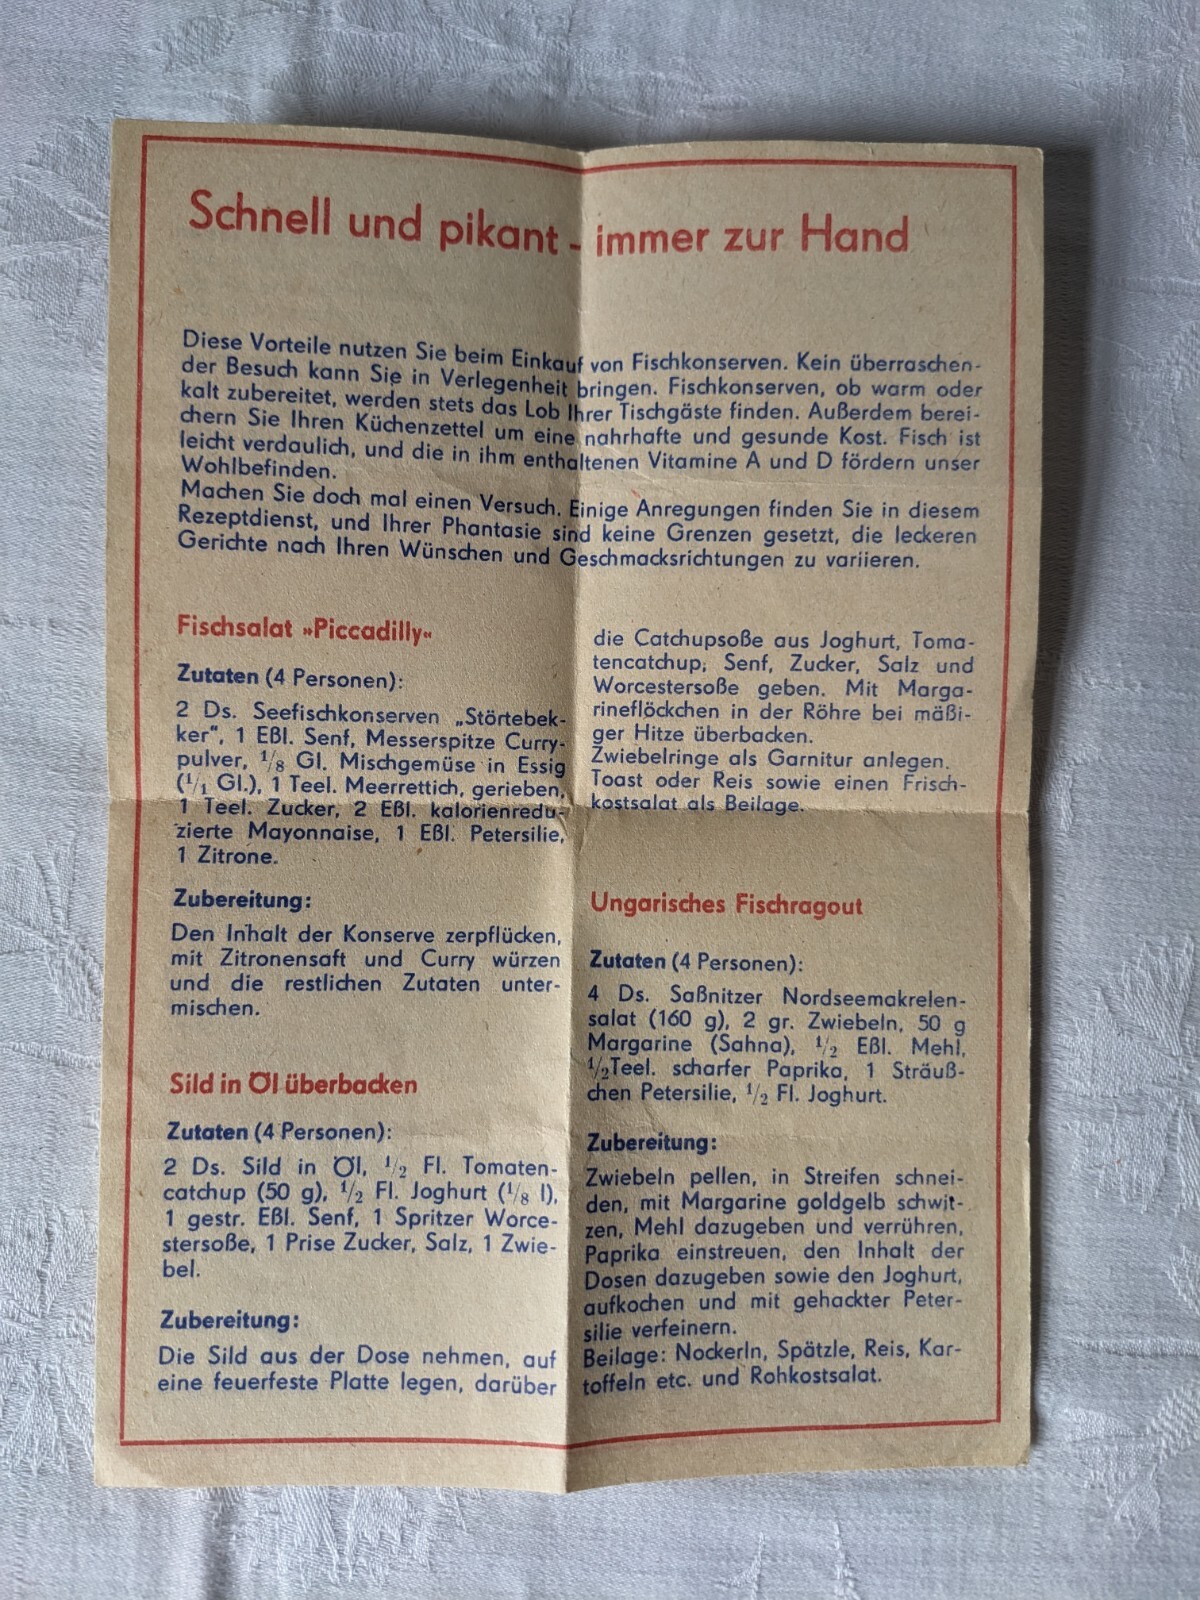 Schnell und pikant - immer zur Hand
Diese Vorteile nutzen Sie beim Einkauf von Fischkonserven. Kein überraschen-
der Besuch kann Sie in Verlegenheit bringen. Fischkonserven, ob warm oder
kalt zubereitet, werden stets das Lob Ihrer Tischgäste finden. Außerdem berei-
chern Sie Ihren Küchenzettel um eine nahrhafte und gesunde Kost. Fisch ist
leicht verdaulich, und die in ihm enthaltenen Vitamine A und D fördern unser
Wohlbefinden.
Machen Sie doch mal einen Versuch. Einige Anregungen finden Sie in diesem
Rezeptdienst, und Ihrer Phantasie sind keine Grenzen gesetzt, die leckeren
Gerichte nach Ihren Wünschen und Geschmacksrichtungen zu variieren.
Fischsalat »Piccadilly«
Zutaten (4 Personen):
2 Ds. Seefischkonserven „Störtebek-
ker", 1 Eßl. Senf, Messerspitze Curry-
pulver, 1/8 Gl. Mischgemüse in Essig
(1/1 Gl.), 1 Teel. Meerrettich, gerieben,
1 Teel. Zucker, 2 Eßl. kalorienredu-
zierte Mayonnaise, 1 Eßl. Petersilie,
1 Zitrone.
Zubereitung:
Den Inhalt der Konserve zerpflücken,
mit Zitronensaft und Curry würzen
und die restlichen Zutaten unter-
mischen.
Sild in Öl überbacken
Zutaten (4 Personen):
2 Ds. Sild in Öl, 1/2 Fl. Tomaten-
catchup (50 g), 1/2 Fl. Joghurt (1/8 l),
1 gestr. Eßl. Senf, 1 Spritzer Worce-
stersoße, 1 Prise Zucker, Salz, 1 Zwie-
bel.
Zubereitung:
Die Sild aus der Dose nehmen, auf
eine feuerfeste Platte legen, darüber
die Catchupsoße aus Joghurt, Toma-
tencatchup, Senf, Zucker, Salz und
Worcestersoße geben. Mit Marga-
rineflöckchen in der Röhre bei mäßi-
ger Hitze überbacken.
Zwiebelringe als Garnitur anlegen.
Toast oder Reis sowie einen Frisch-
kostsalat als Beilage.
Ungarisches Fischragout
Zutaten (4 Personen):
4 Ds. Saßnitzer Nordseemakrelen-
salat (160 g), 2 gr. Zwiebeln, 50 g
Margarine (Sahna), 1/2 Eßl. Mehl,
1/2 Teel. scharfer Paprika, 1 Sträuß-
chen Petersilie, 1/2 Fl. Joghurt.
Zubereitung:
Zwiebeln pellen, in Streifen schnei-
den, mit Margarine goldgelb schwit-
zen, Mehl dazugeben und verrühren,
Paprika einstreuen, den Inhalt der
Dosen dazugeben sowie den Joghurt,
aufkochen und mit gehackter Peter-
silie verfeinern.
Beilage: Nockerln, Spätzle, Reis, Kar-
toffeln etc. und Rohkostsalat.